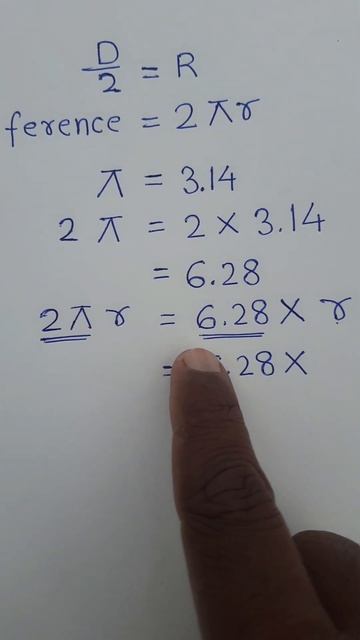 D/2 = R
ference = 2πr
π = 3.14
2π = 2 × 3.14
= 6.28
2πr = 6.28 × r
= .28 ×